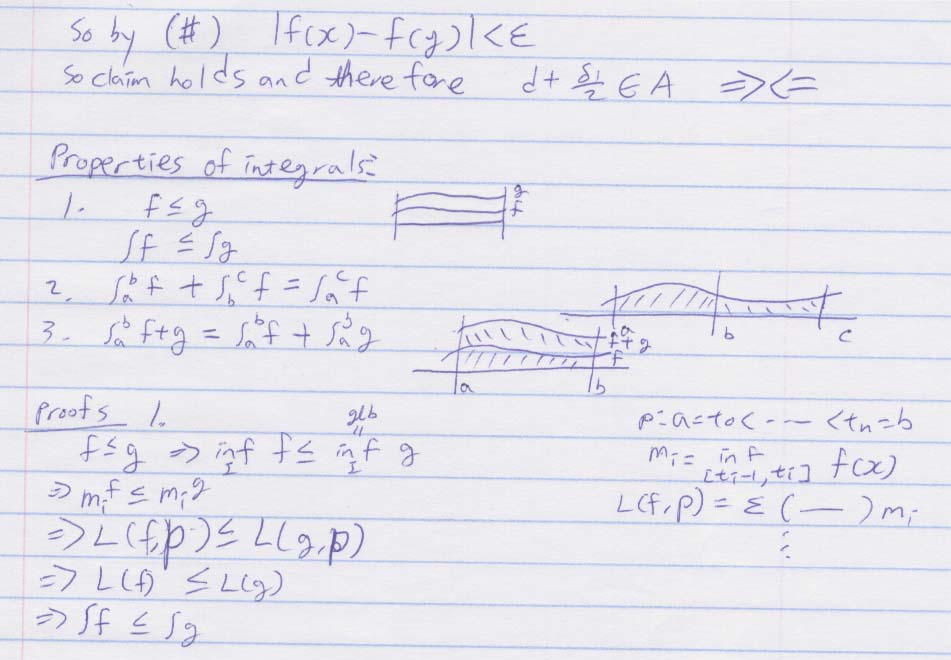 So by (#) |f(x)-f(y)|<ε
So claim holds and therefore d + δ₁/2 ∈ A ⇒⇐
Properties of integrals:
1. f ≤ g
∫f ≤ ∫g
g
f
2. ∫ₐᵇ f + ∫_b^c f = ∫ₐᶜ f
a b c
3. ∫ₐᵇ f+g = ∫ₐᵇ f + ∫ₐᵇ g
f+g
f
a b
Proofs 1.
glb
"
f≤g ⇒ inf_I f ≤ inf_I g
⇒ m_i^f ≤ m_i^g
⇒ L(f,p) ≤ L(g,p)
⇒ L(f) ≤ L(g)
⇒ ∫f ≤ ∫g
p: a=t₀< --- <tₙ=b
m_i = inf_[t_{i-1}, t_i] f(x)
L(f,p) = Σ ( — ) m_i
⋮